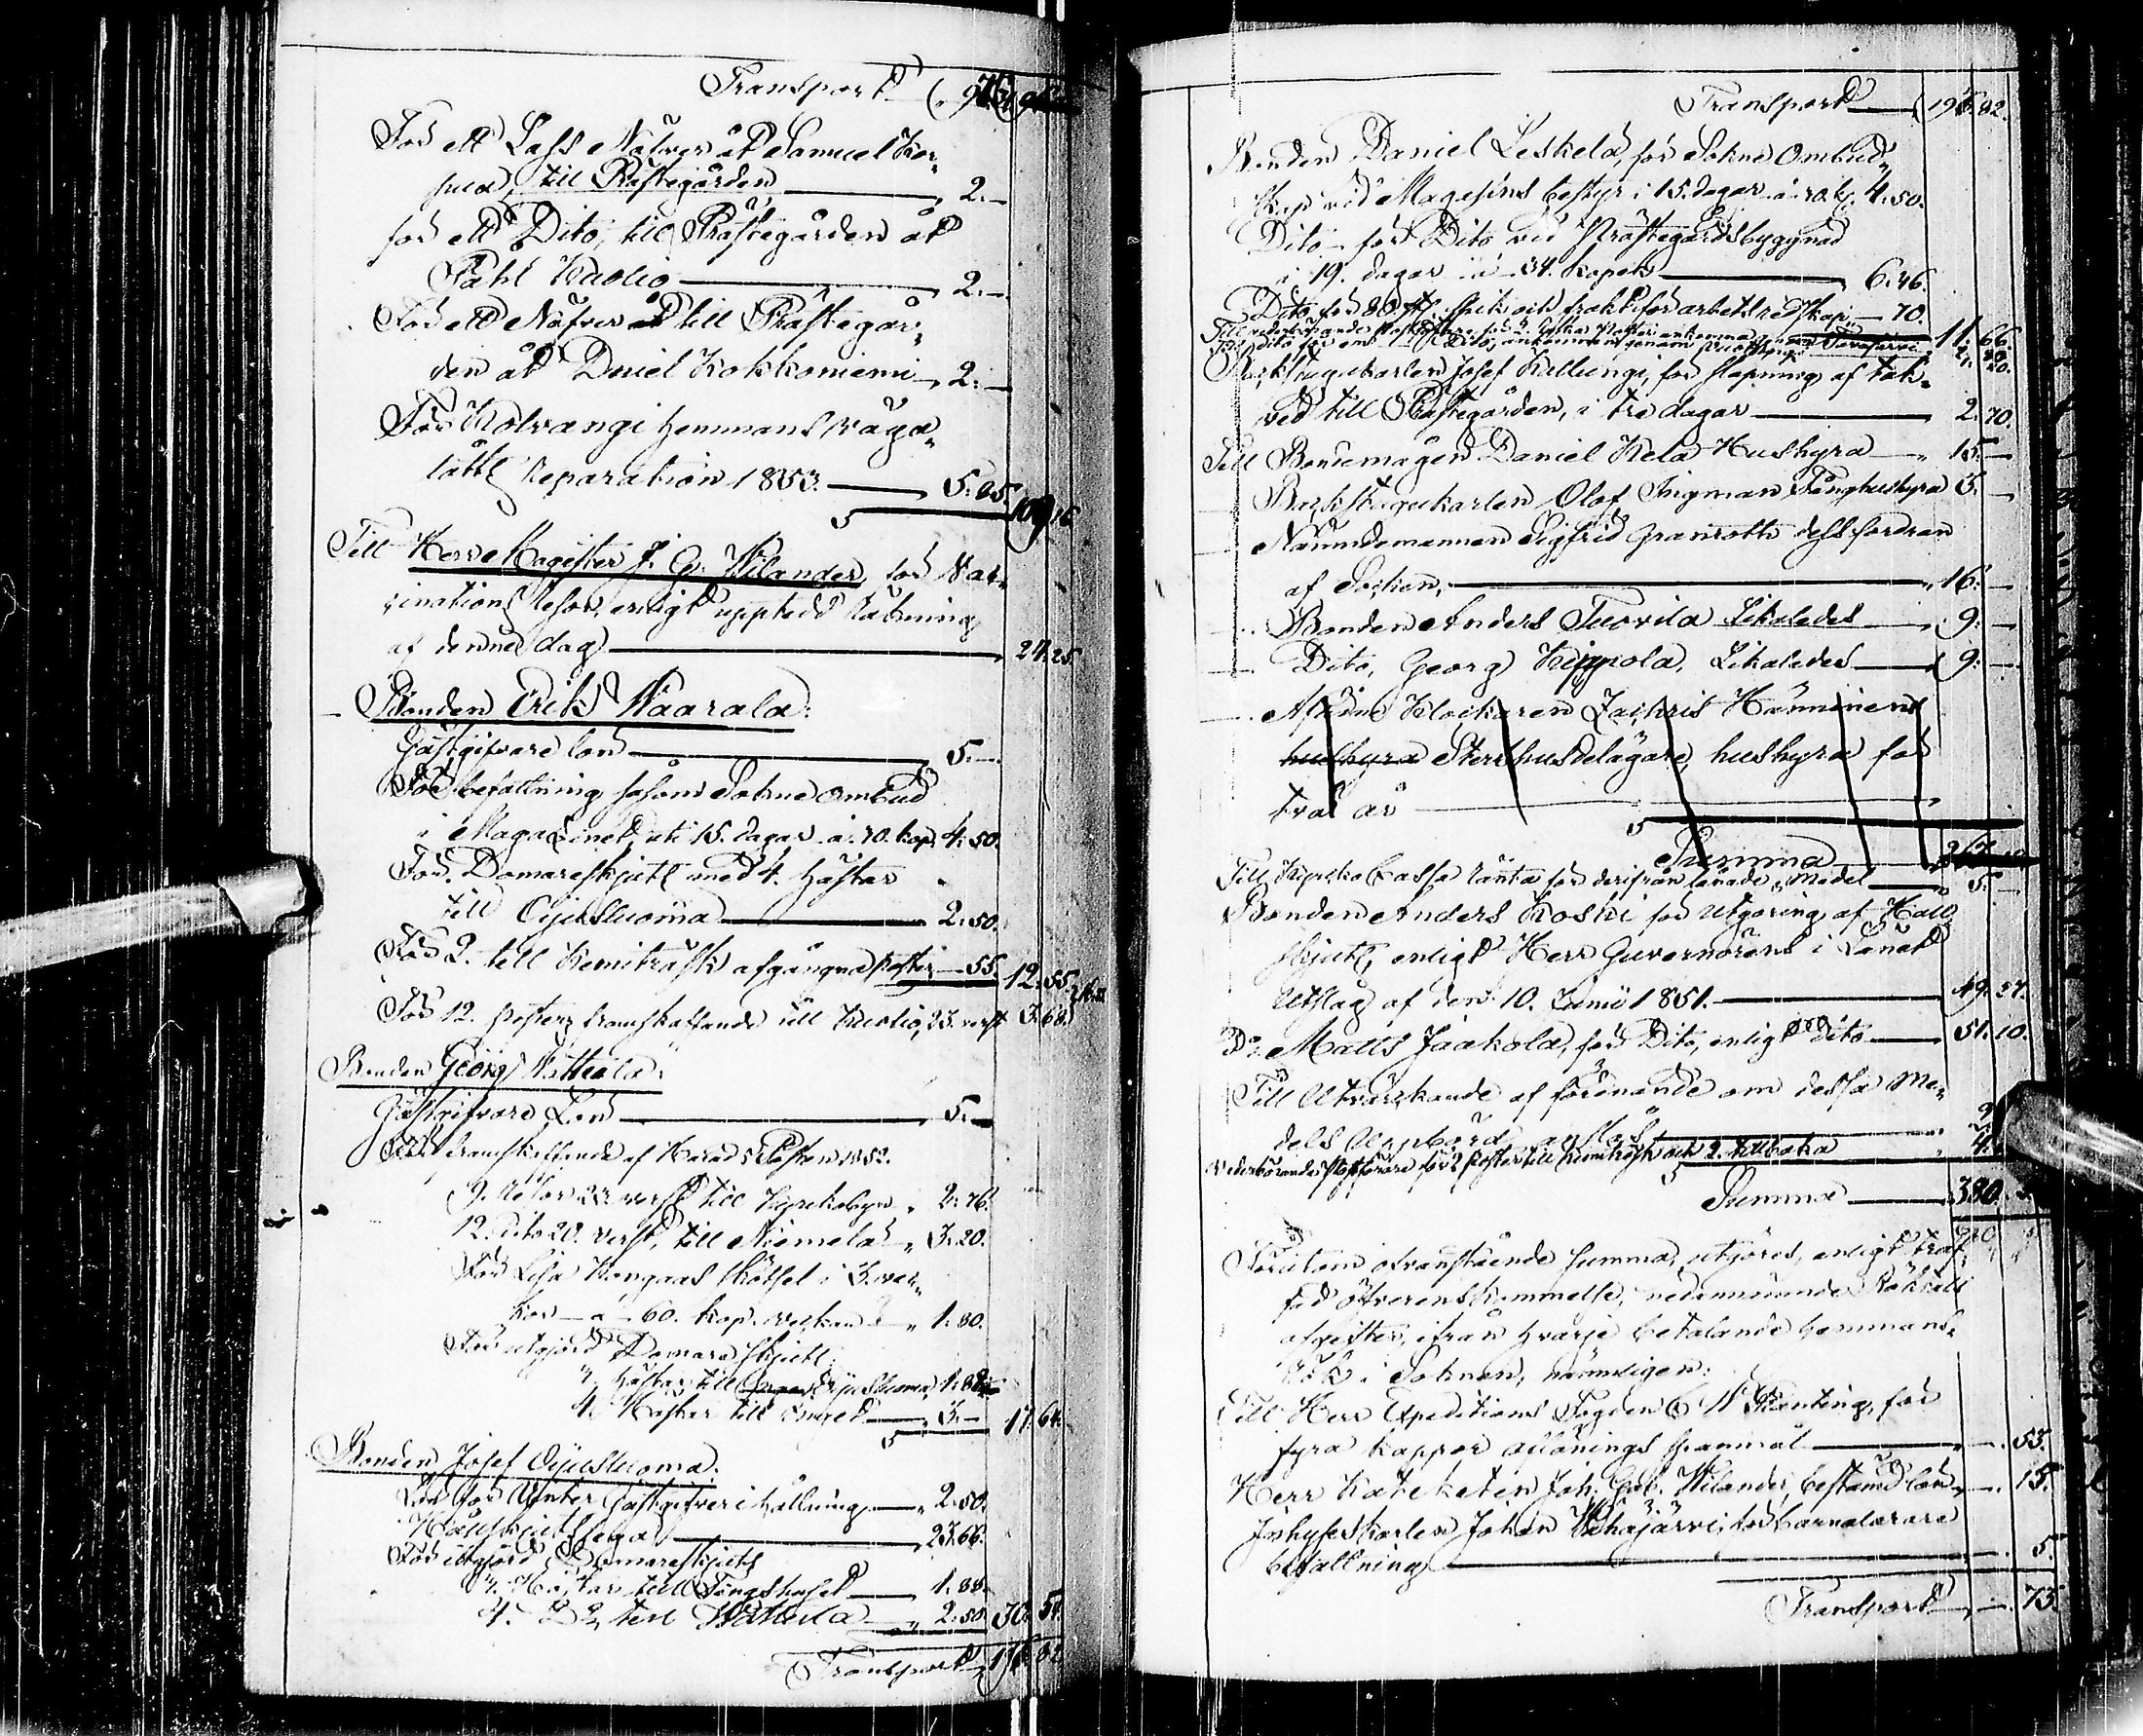 Transport
För ett Lass Näfver åt Samuel Kor„
pua, till Prästegården 2.—
för ett Dito, till Prästegården åt
Påhl Kuolio 2.—
För ett Näfver till Prästegår„
den åt Daniel Kokkoniemi 2.—
För Kolvangi hemmans väga„
lotts reparation 1853. 5.25.
Till Herr Magister J. G. Wilander, för Vac„
cinations resor, enligt uppgifvd Räkning
af denna dag 24.25.
Bonden Erik Waarala.
Gästgifvare lön 5.—
För befattning såsom Sokne ombud
i Magazinet, uti 15. dagar à 30. kop. 4.50.
För Domareskjuts med 4. hästar
till Oijusluoma 2.50.
För 2. till Kemiträsk afgångna poster 55. 12.55.
För 12. posters framskaffande till Kuolio, 23. verst 3.68.
Bonden Georg Määttälä.
Gästgifvare Lön 5.—
För framskaffande af Härads Posten 1852.
9. resor 23 verst till Kyrkobyn „ 2.76.
12. dito 20. verst, till Niemelä „ 3.20.
För Lisa Kongaas skötsel i 3. vec„
kor à 60. kop. veckan „ 1.80.
För utgjord Domare skjuts
hästar till Oijusluoma 1.88.
4. Hästar till 3.— 17.64.
Bonden Josef Oijusluoma.
Lön för Vinter Gästgifveri hållning „ 2.50.
Hållskjutslega 23.66.
För utgjord Domareskjuts
Hästar till Tingshuset 1.88.
4. Do till Määttälä „ 2.50. 30.54.
Transport 196.82.
Transport 196.82.
Bonden Daniel Leskelä, för Sokne Ombud„
skap vid Magasins bestyr i 15. dagar à 30. k. 4.50.
Dito för Dito vid Prästegårdsbyggnad
i 19. dagar à 34. kopek 6.46.
Dito för 80. st. spik och frakt för arbetsredskap 70. 11.66.
Backstugukarlen Josef Kallungi, för släpning af tak„
ved till Prästegården, i tre dagar 2.70.
Till Bondemågen Daniel Kela Hushyra „ 15.—
Backstugukarlen Olof Ingman Fånghushyra 3.—
Nämndemannen Sigfrid Granroth dess fordran
af Socken, „ 16.—
Bonden Anders Tuovila Likaledes „ 9.—
Dito, Georg Keippola, Likaledes „ 9.—
Aflidne Klockaren Zachris Hänninens
hushyra Sterbhusdelägare, hushyra för
två år
Summa
Till Kyrko Cassa ränta för derifrån lånade Medel „ 5.—
Bonden Anders Koski för utgöring af Håll
skjuts, enligt Herr Guvernörens i Länet
Utslag af den 10. Junii 1851. 49.27.
Do Matts Jaakola, för Dito, enligt dito 51.10.
Till Utvärkande af förenande om dessa Me„
dels Uppbörd anslås 2.
Vederbörande Postförare för 2 poster till Kemiträsk och 2. tillbaka
Summa 380.
Förutom ofvanstående summa, utgöres, enligt träf„
fad öfverenskommelse, nedannämnde Rökfulls
afgifter, ifrån hvarje betalande hemmans
rök i Soknen, nämligen:
Till Herr Expeditions Fogden C. W. Planting, för
fyra kappor aflönings spannmål —. 53.
Herr Kateketen Joh. Gab. Wilander, bestämd lön —. 15.
Inhyseskarlen Johan Wehajärvi, för barnalärare
befattning —. 5.
Transport —. 73.